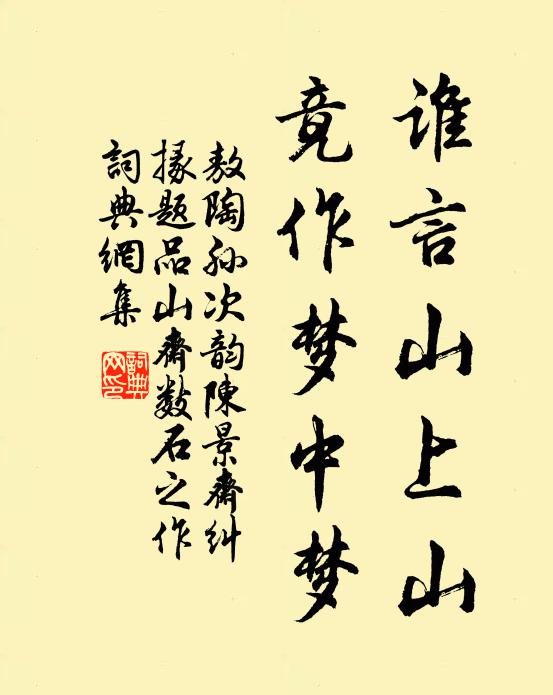 谁言山上山
竟作梦中梦
敖陶孙次韵陈景齋纠
掾题品山齋数石之作
詞典網集
詞典
网印